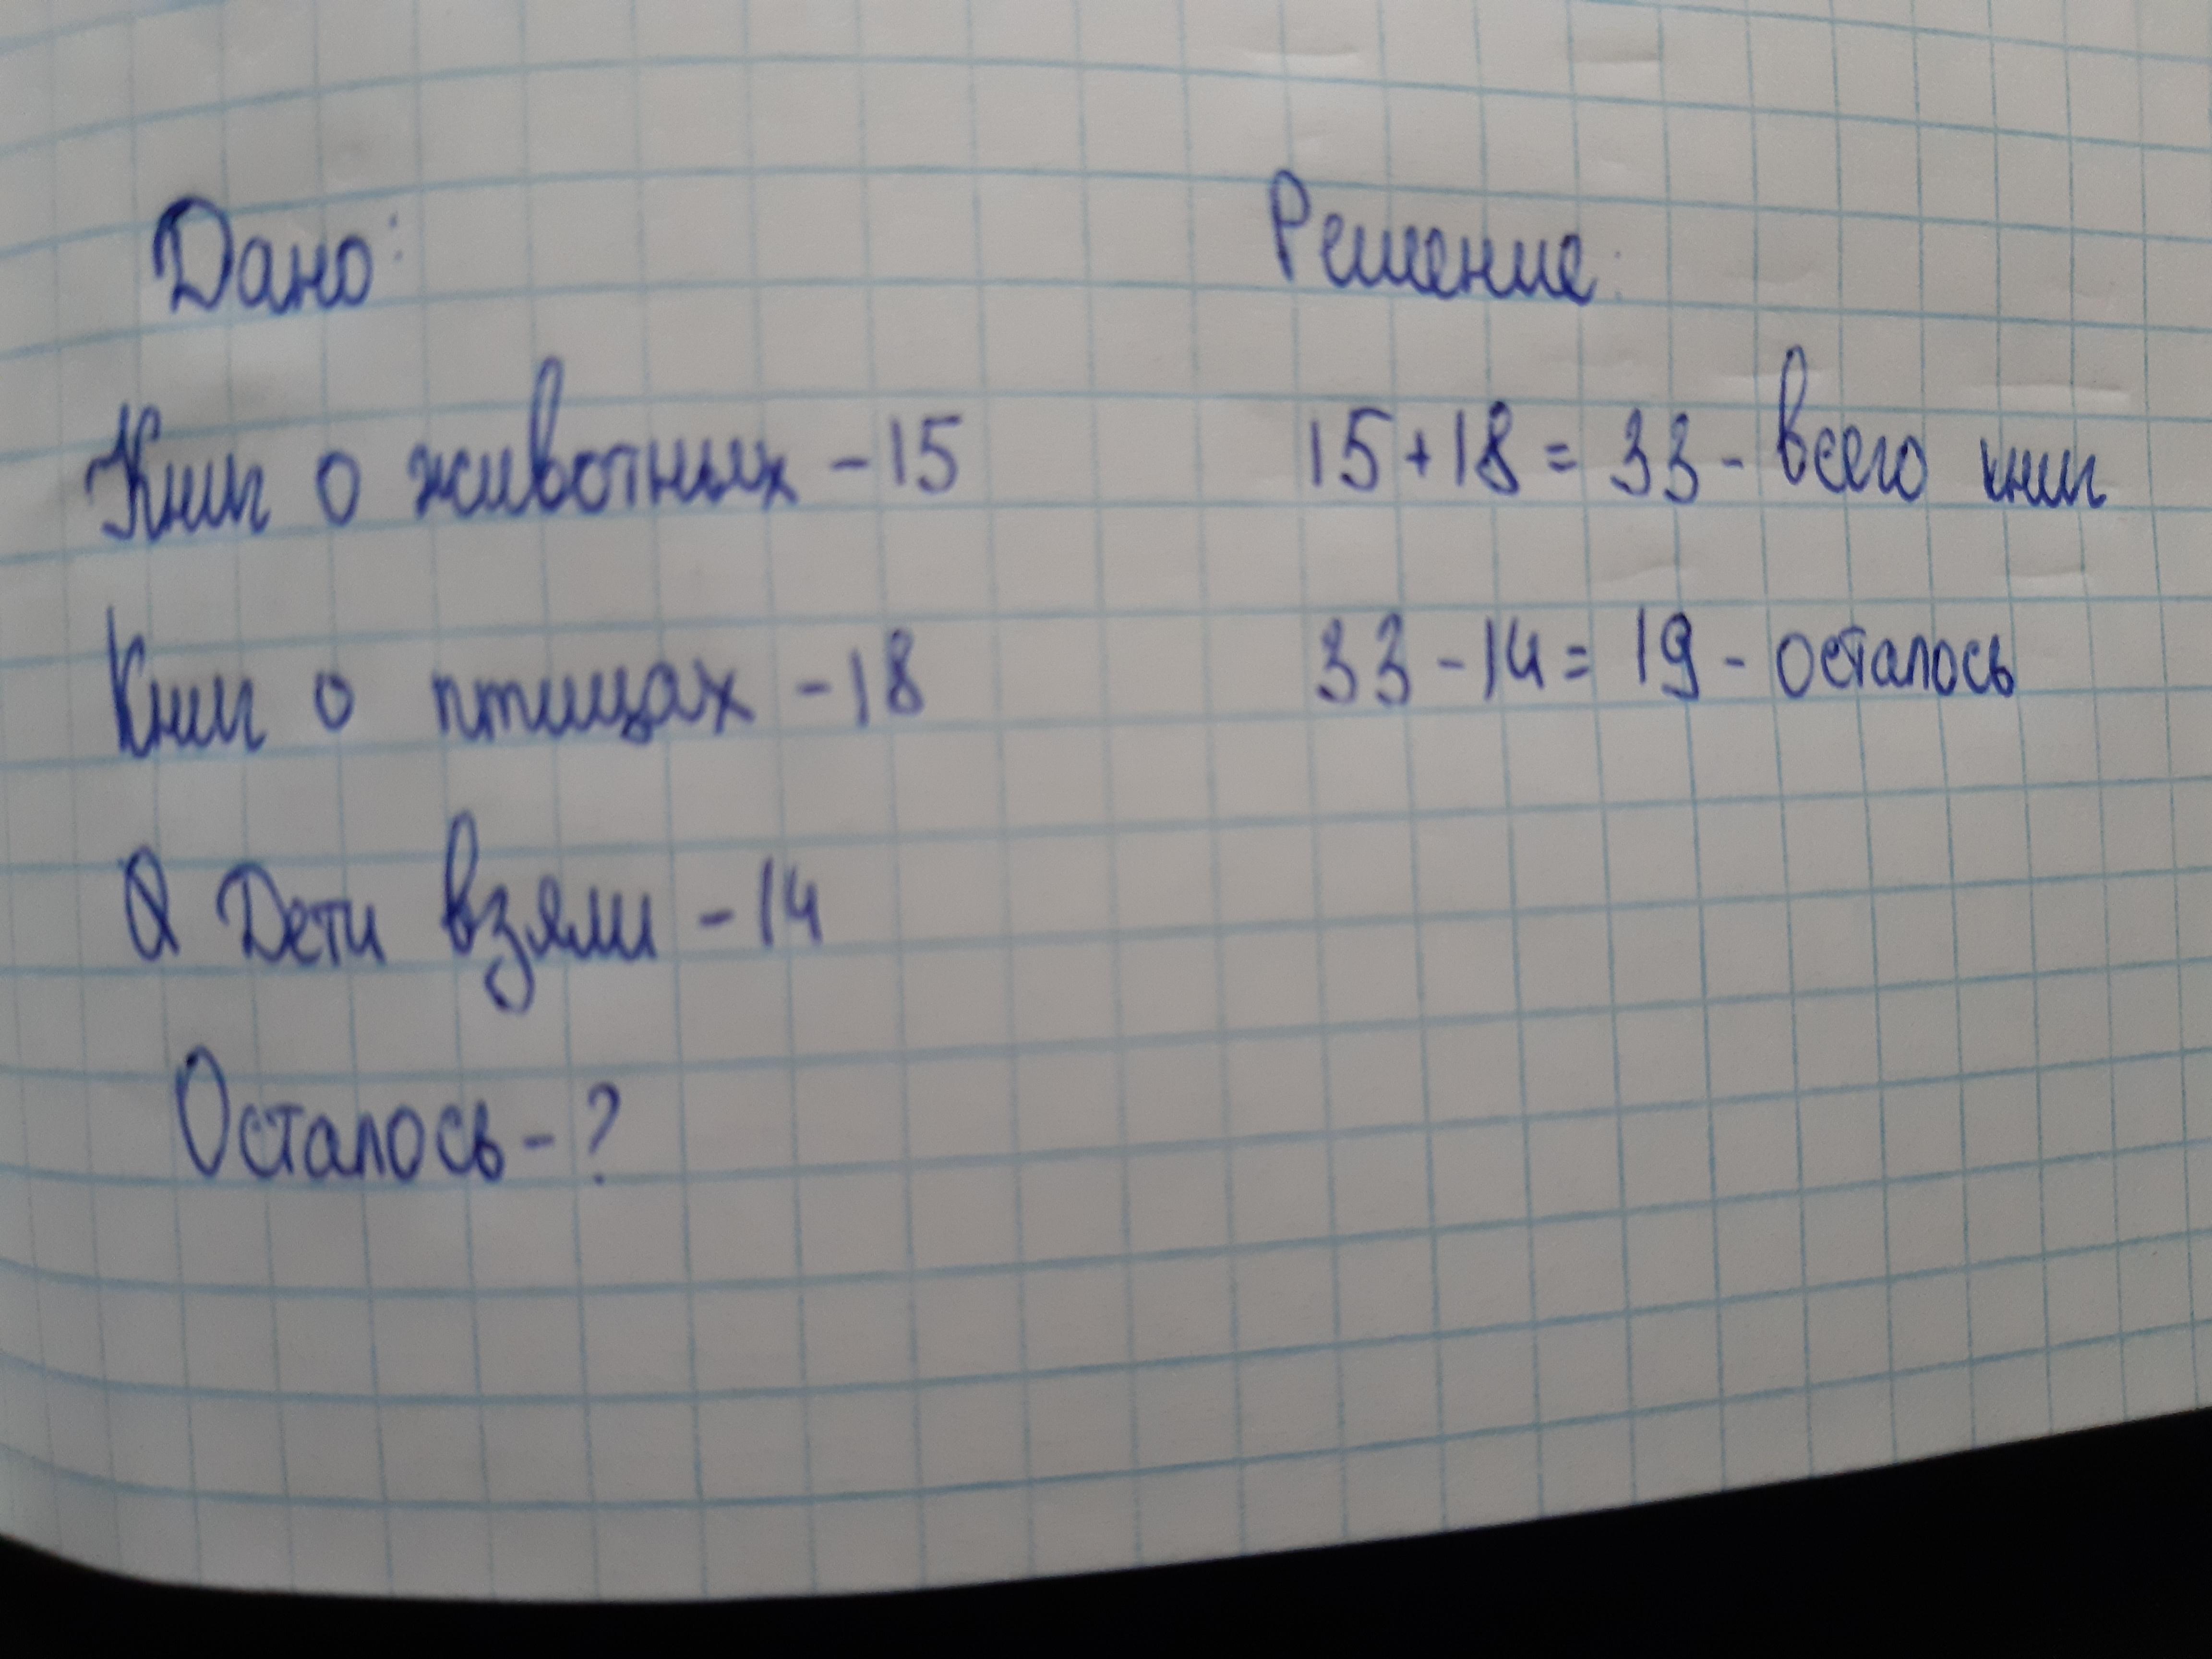 Дано:
Книг о животных - 15
Книг о птицах - 18
Дети взяли - 14
Осталось - ?
Решение:
15 + 18 = 33 - всего книг
33 - 14 = 19 - осталось